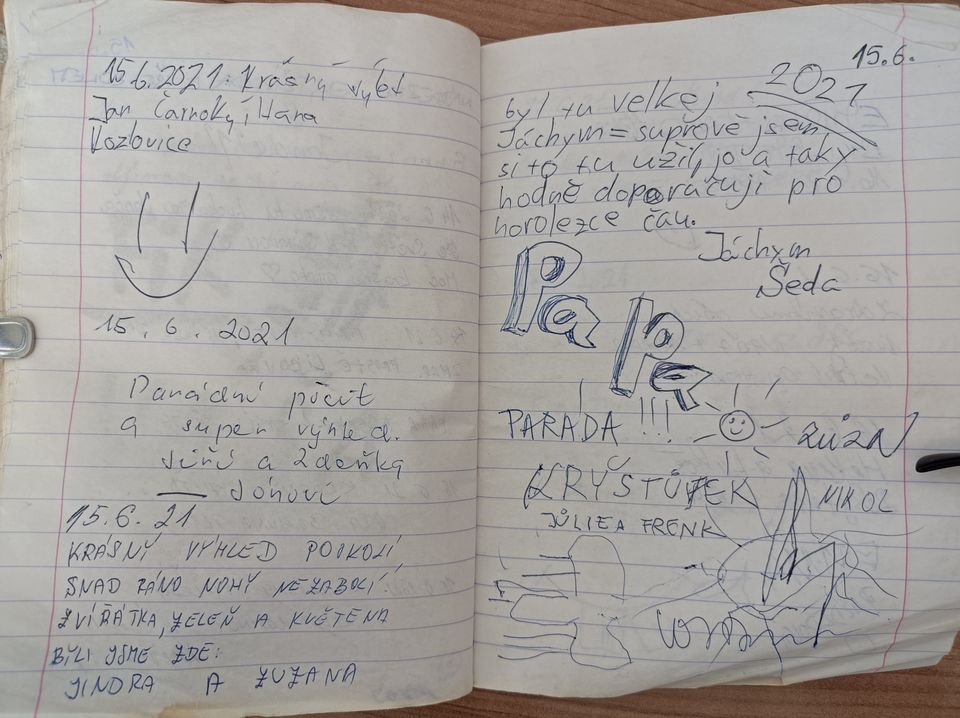 15.6.2021. Krásný výlet
Jan Čarnoký, Hana
Kozlovice
15. 6. 2021
Parádní pocit
a super výhled.
Jiří a Zdeňka
Jónovi
15.6.21
KRÁSNÝ VÝHLED POTKOLÍ
SNAD RÁNO NOHY NEZABOLÍ!
ZVÍŘÁTKA, ZELEŇ A KVĚTENA
BYLI JSME ZDE:
JINDRA A ZUZANA
15.6.
2021
byl tu velkej
Jáchym = suprově jsem
si to tu užil, jo a taky
hodně doporáčuji pro
horolezce čau.
Jáchym
Šeda
Pa
Pa
PARÁDA !!!
KRYŠTŮFEK
NIKOL
JŮLIE A FRENK